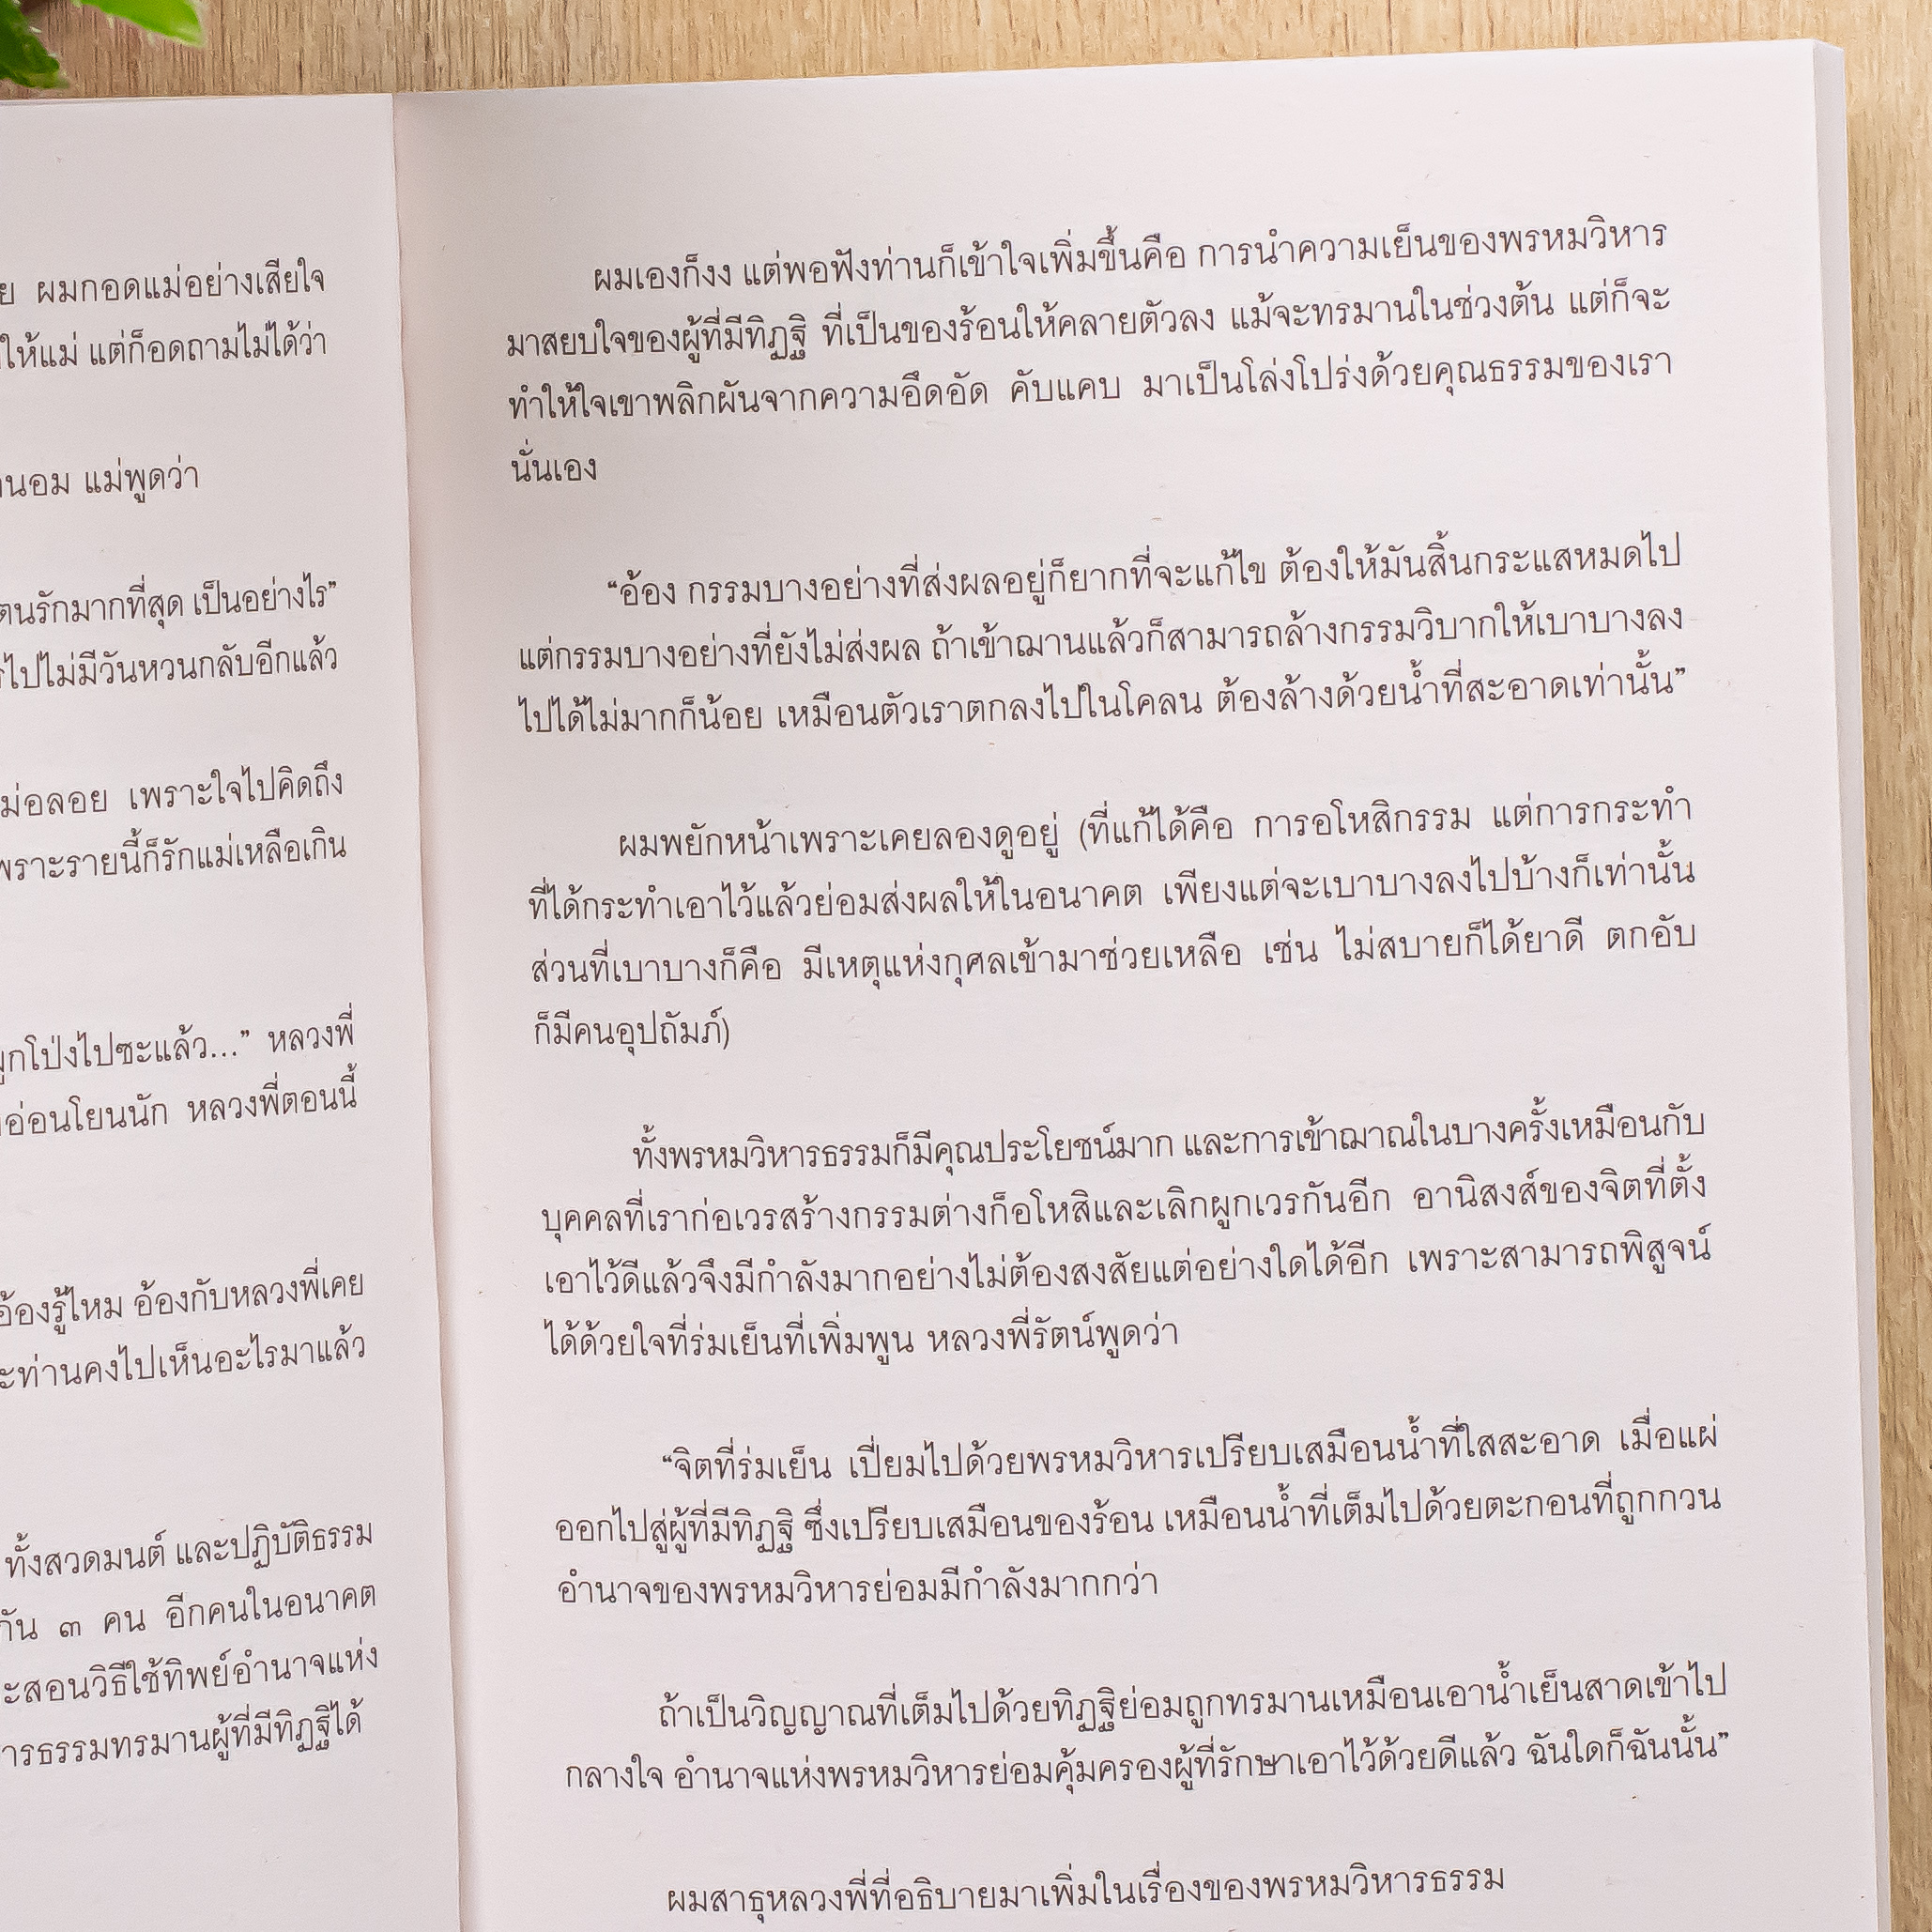 ผมกอดแม่อย่างเสียใจ
ให้แม่ แต่ก็อดถามไม่ได้ว่า
แม่พูดว่า
ตนรักมากที่สุด เป็นอย่างไร”
ไปไม่มีวันหวนกลับอีกแล้ว
เพราะใจไปคิดถึง
เพราะรายนี้ก็รักแม่เหลือเกิน
ไปซะแล้ว...” หลวงพี่
อ่อนโยนนัก หลวงพี่ตอนนี้
อ้องรู้ไหม อ้องกับหลวงพี่เคย
ท่านคงไปเห็นอะไรมาแล้ว
ทั้งสวดมนต์ และปฏิบัติธรรม
กัน ๓ คน อีกคนในอนาคต
สอนวิธีใช้ทิพย์อำนาจแห่ง
ธรรมทรมานผู้ที่มีทิฏฐิได้
ผมเองก็งง แต่พอฟังท่านก็เข้าใจเพิ่มขึ้นคือ การนำความเย็นของพรหมวิหาร
มาสยบใจของผู้ที่มีทิฏฐิ ที่เป็นของร้อนให้คลายตัวลง แม้จะทรมานในช่วงต้น แต่ก็จะ
ทำให้ใจเขาพลิกผันจากความอึดอัด คับแคบ มาเป็นโล่งโปร่งด้วยคุณธรรมของเรา
นั่นเอง
“อ้อง กรรมบางอย่างที่ส่งผลอยู่ก็ยากที่จะแก้ไข ต้องให้มันสิ้นกระแสหมดไป
แต่กรรมบางอย่างที่ยังไม่ส่งผล ถ้าเข้าฌานแล้วก็สามารถล้างกรรมวิบากให้เบาบางลง
ไปได้ไม่มากก็น้อย เหมือนตัวเราตกลงไปในโคลน ต้องล้างด้วยน้ำที่สะอาดเท่านั้น”
ผมพยักหน้าเพราะเคยลองดูอยู่ (ที่แก้ได้คือ การอโหสิกรรม แต่การกระทำ
ที่ได้กระทำเอาไว้แล้วย่อมส่งผลให้ในอนาคต เพียงแต่จะเบาบางลงไปบ้างก็เท่านั้น
ส่วนที่เบาบางก็คือ มีเหตุแห่งกุศลเข้ามาช่วยเหลือ เช่น ไม่สบายก็ได้ยาดี ตกอับ
ก็มีคนอุปถัมภ์)
ทั้งพรหมวิหารธรรมก็มีคุณประโยชน์มาก และการเข้าฌาณในบางครั้งเหมือนกับ
บุคคลที่เราก่อเวรสร้างกรรมต่างก็อโหสิและเลิกผูกเวรกันอีก อานิสงส์ของจิตที่ตั้ง
เอาไว้ดีแล้วจึงมีกำลังมากอย่างไม่ต้องสงสัยแต่อย่างใดได้อีก เพราะสามารถพิสูจน์
ได้ด้วยใจที่ร่มเย็นที่เพิ่มพูน หลวงพี่รัตน์พูดว่า
“จิตที่ร่มเย็น เปี่ยมไปด้วยพรหมวิหารเปรียบเสมือนน้ำที่ใสสะอาด เมื่อแผ่
ออกไปสู่ผู้ที่มีทิฏฐิ ซึ่งเปรียบเสมือนของร้อน เหมือนน้ำที่เต็มไปด้วยตะกอนที่ถูกกวน
อำนาจของพรหมวิหารย่อมมีกำลังมากกว่า
ถ้าเป็นวิญญาณที่เต็มไปด้วยทิฏฐิย่อมถูกทรมานเหมือนเอาน้ำเย็นสาดเข้าไป
กลางใจ อำนาจแห่งพรหมวิหารย่อมคุ้มครองผู้ที่รักษาเอาไว้ด้วยดีแล้ว ฉันใดก็ฉันนั้น”
ผมสาธุหลวงพี่ที่อธิบายมาเพิ่มในเรื่องของพรหมวิหารธรรม